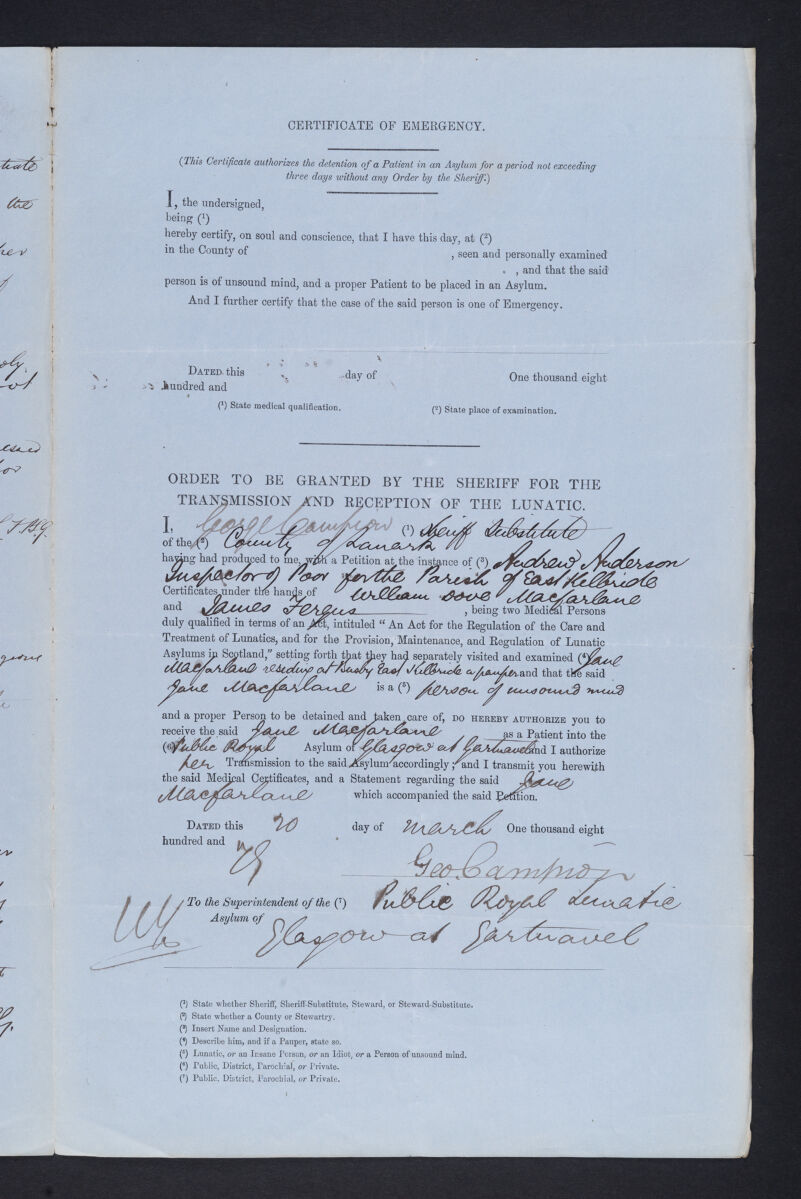 CERTIFICATE OF EMERGENCY.
(This Certificate authorizes the detention of a Patient in an Asylum for a period not exceeding
three days without any Order by the Sheriff.)
I, the undersigned,
being (1)
hereby certify, on soul and conscience, that I have this day, at (2)
in the County of , seen and personally examined
, and that the said
person is of unsound mind, and a proper Patient to be placed in an Asylum.
And I further certify that the case of the said person is one of Emergency.
DATED this day of One thousand eight
hundred and
(1) State medical qualification. (2) State place of examination.
ORDER TO BE GRANTED BY THE SHERIFF FOR THE
TRANSMISSION AND RECEPTION OF THE LUNATIC.
I, George Campion (1) Sheriff Substitute
of the (2) County of Lanark
having had produced to me, with a Petition at the instance of (3) Andrew Anderson
Inspector of Poor for the Parish of East Kilbride
Certificates under the hands of William Dove Macfarlane
and James Fergus , being two Medical Persons
duly qualified in terms of an Act, intituled “ An Act for the Regulation of the Care and
Treatment of Lunatics, and for the Provision, Maintenance, and Regulation of Lunatic
Asylums in Scotland,” setting forth that they had separately visited and examined (4) Jane
Macfarlane residing at Busby East Kilbride a pauper and that the said
Jane Macfarlane is a (5) person of unsound mind
and a proper Person to be detained and taken care of, DO HEREBY AUTHORIZE you to
receive the said Jane Macfarlane as a Patient into the
(6) Public Royal Asylum of Glasgow at Gartnavel and I authorize
her Transmission to the said Asylum accordingly ; and I transmit you herewith
the said Medical Certificates, and a Statement regarding the said Jane
Macfarlane which accompanied the said Petition.
DATED this 20 day of March One thousand eight
hundred and
Geo. Campion
To the Superintendent of the (7) Public Royal Lunatic
Asylum of Glasgow at Gartnavel
(1) State whether Sheriff, Sheriff-Substitute, Steward, or Steward-Substitute.
(2) State whether a County or Stewartry.
(3) Insert Name and Designation.
(4) Describe him, and if a Pauper, state so.
(5) Lunatic, or an Insane Person, or an Idiot, or a Person of unsound mind.
(6) Public, District, Parochial, or Private.
(7) Public, District, Parochial, or Private.